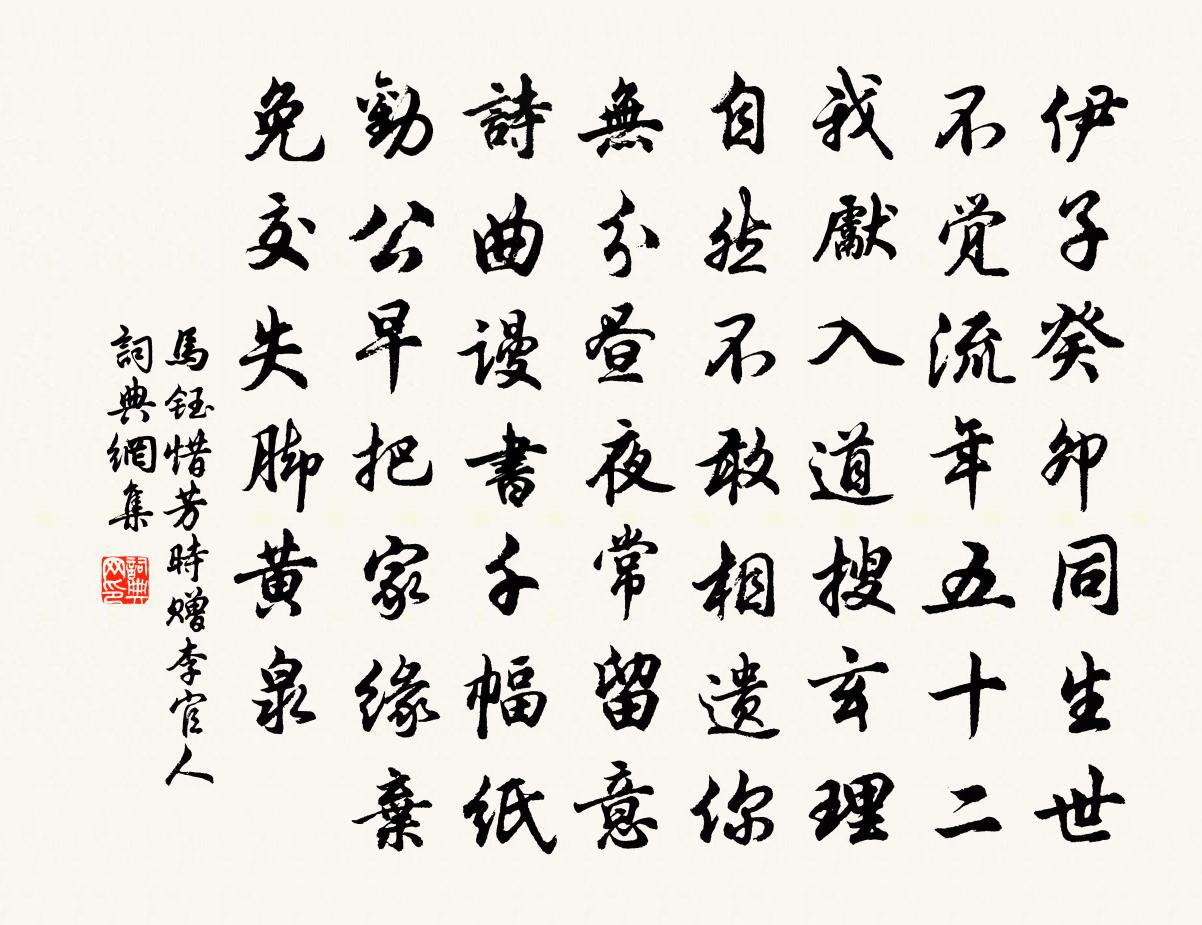 伊子癸卯同生世
不覚流年五十二
我獻入道搜玄理
自然不敢相遗你
無分昼夜常留意
詩曲谩書千幅紙
勸公早把家緣棄
免交失脚黄泉
馬鈺惜芳時赠李官人
詞典網集
詞典网印